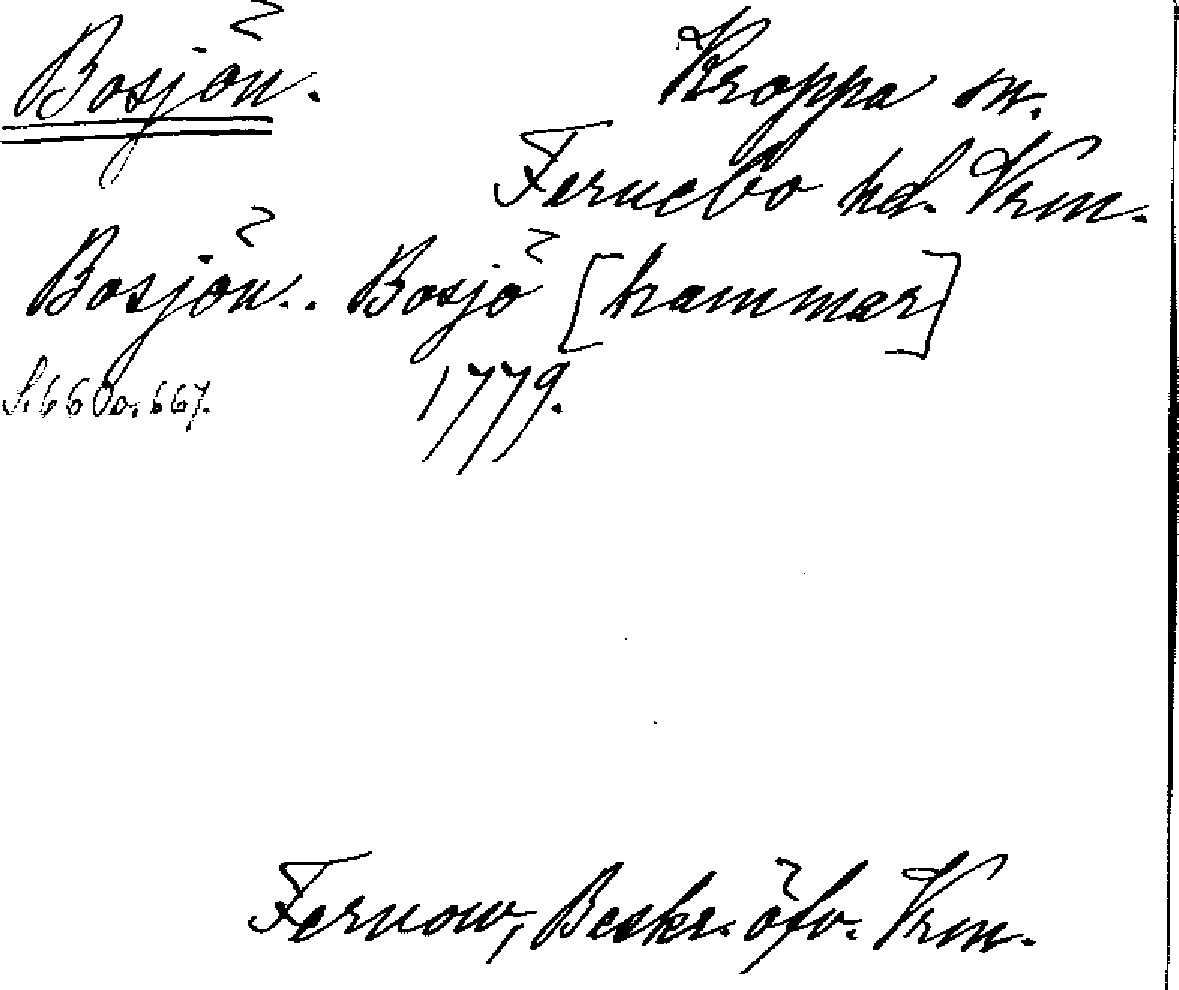 Bosjön. Kroppa sn.
Fernebo hd. Vrm.
Bosjön.. Bosjö [hammar]
S. 660 o. 667. 1779.
Fernow, Beskr. öfv. Vrm.